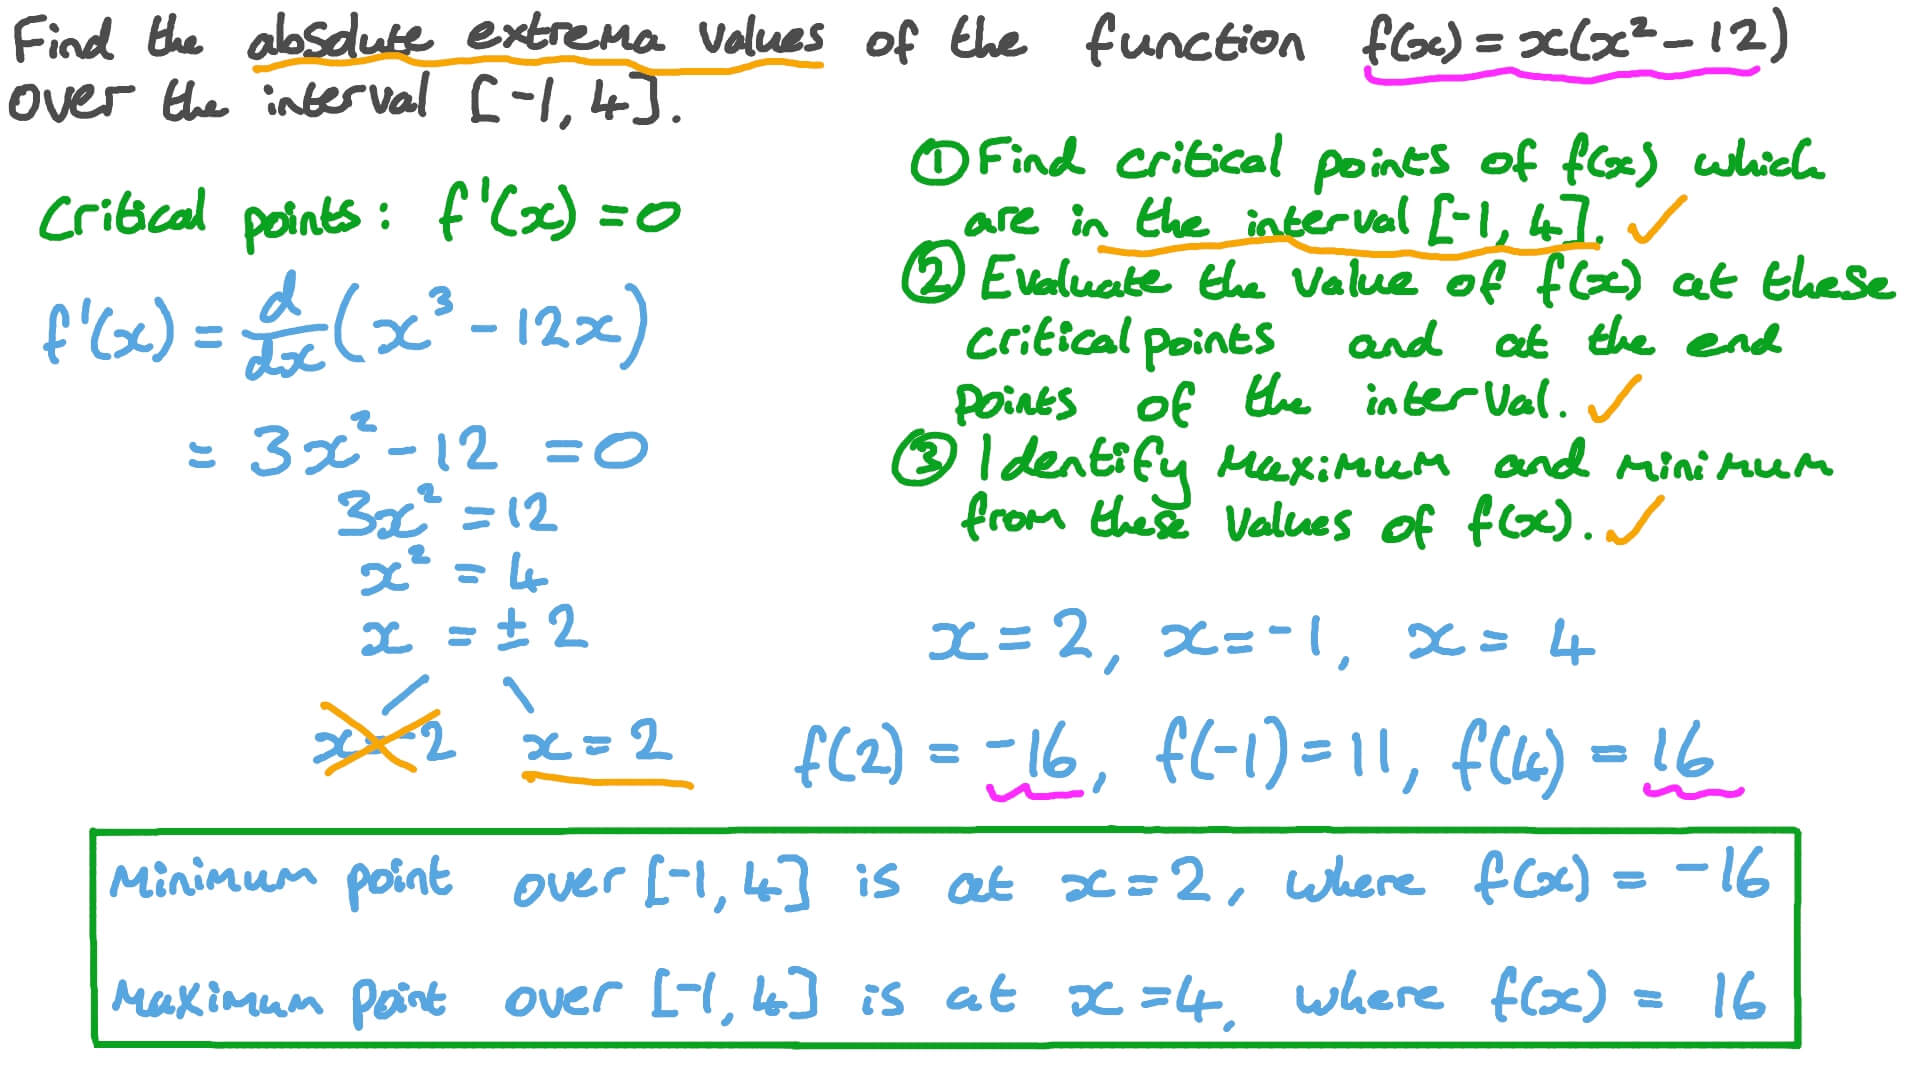 Find the absolute extrema values of the function f(x) = x(x² - 12)
over the interval [-1, 4].
Critical points: f'(x) = 0
f'(x) = d/dx (x³ - 12x)
= 3x² - 12 = 0
3x² = 12
x² = 4
x = ± 2
x = -2 x = 2
① Find critical points of f(x) which
are in the interval [-1, 4]. ✓
② Evaluate the value of f(x) at these
critical points and at the end
points of the interval. ✓
③ Identify maximum and minimum
from these values of f(x). ✓
x = 2, x = -1, x = 4
f(2) = -16, f(-1) = 11, f(4) = 16
Minimum point over [-1, 4] is at x = 2, where f(x) = -16
Maximum point over [-1, 4] is at x = 4, where f(x) = 16